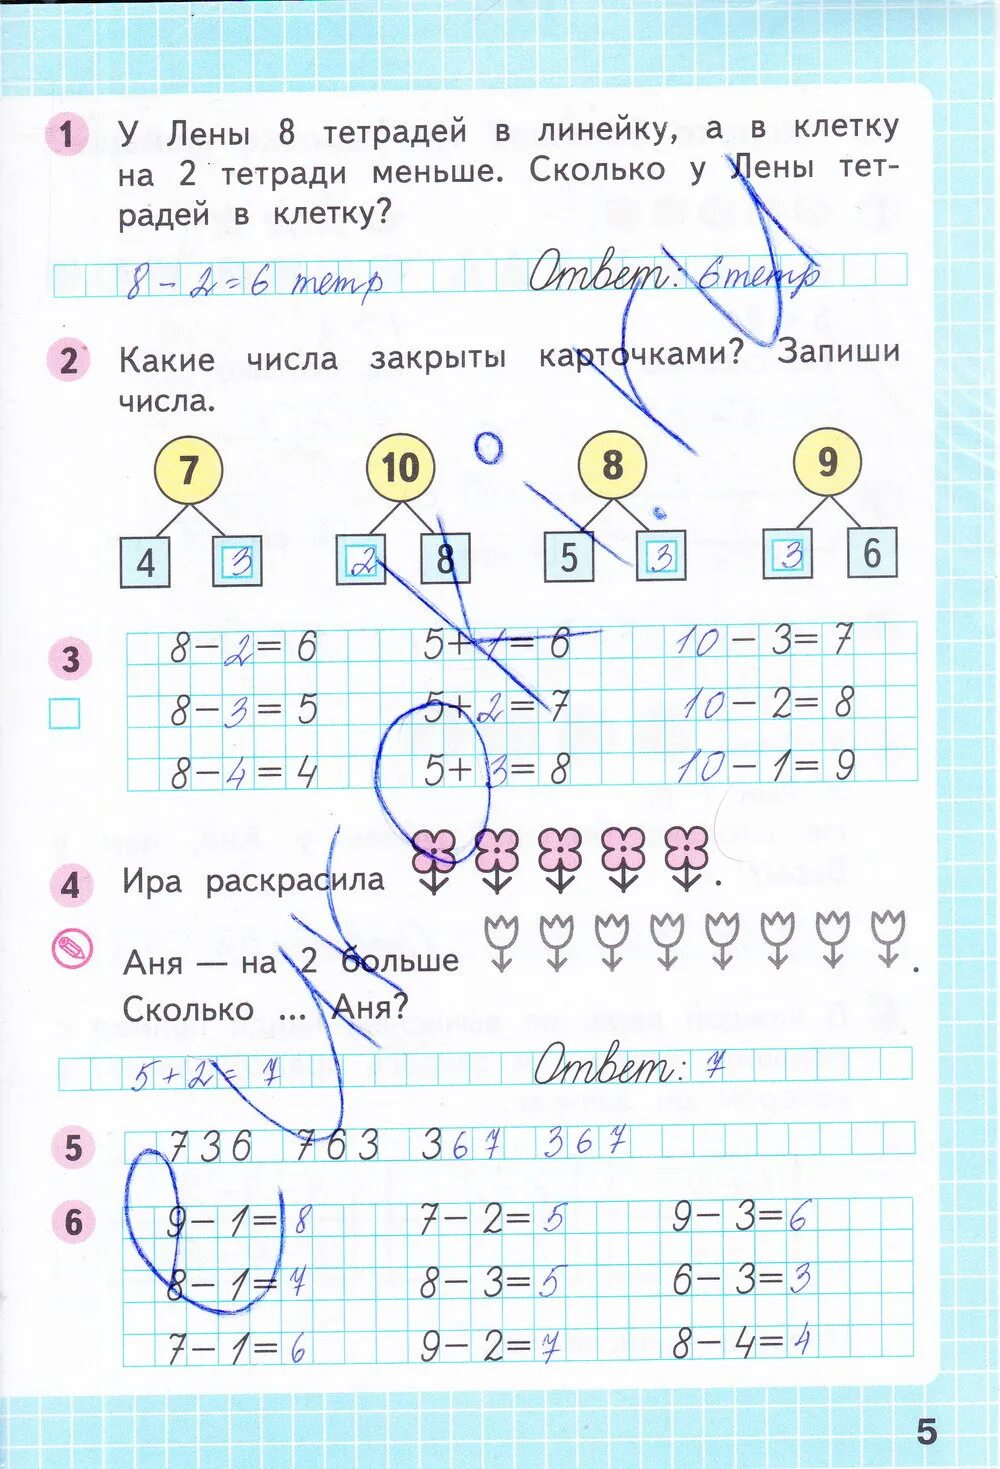 1 У Лены 8 тетрадей в линейку, а в клетку
на 2 тетради меньше. Сколько у Лены тет-
радей в клетку?
8 - 2 = 6 тетр Ответ: 6 тетр
2 Какие числа закрыты карточками? Запиши
числа.
7 10 8 9
4 3 2 8 5 3 3 6
3 8 - 2 = 6 5 + 1 = 6 10 - 3 = 7
8 - 3 = 5 5 + 2 = 7 10 - 2 = 8
8 - 4 = 4 5 + 3 = 8 10 - 1 = 9
4 Ира раскрасила .
Аня — на 2 больше .
Сколько ... Аня?
5 + 2 = 7 Ответ: 7
5 736 763 367 367
6 9 - 1 = 8 7 - 2 = 5 9 - 3 = 6
8 - 1 = 7 8 - 3 = 5 6 - 3 = 3
7 - 1 = 6 9 - 2 = 7 8 - 4 = 4
5